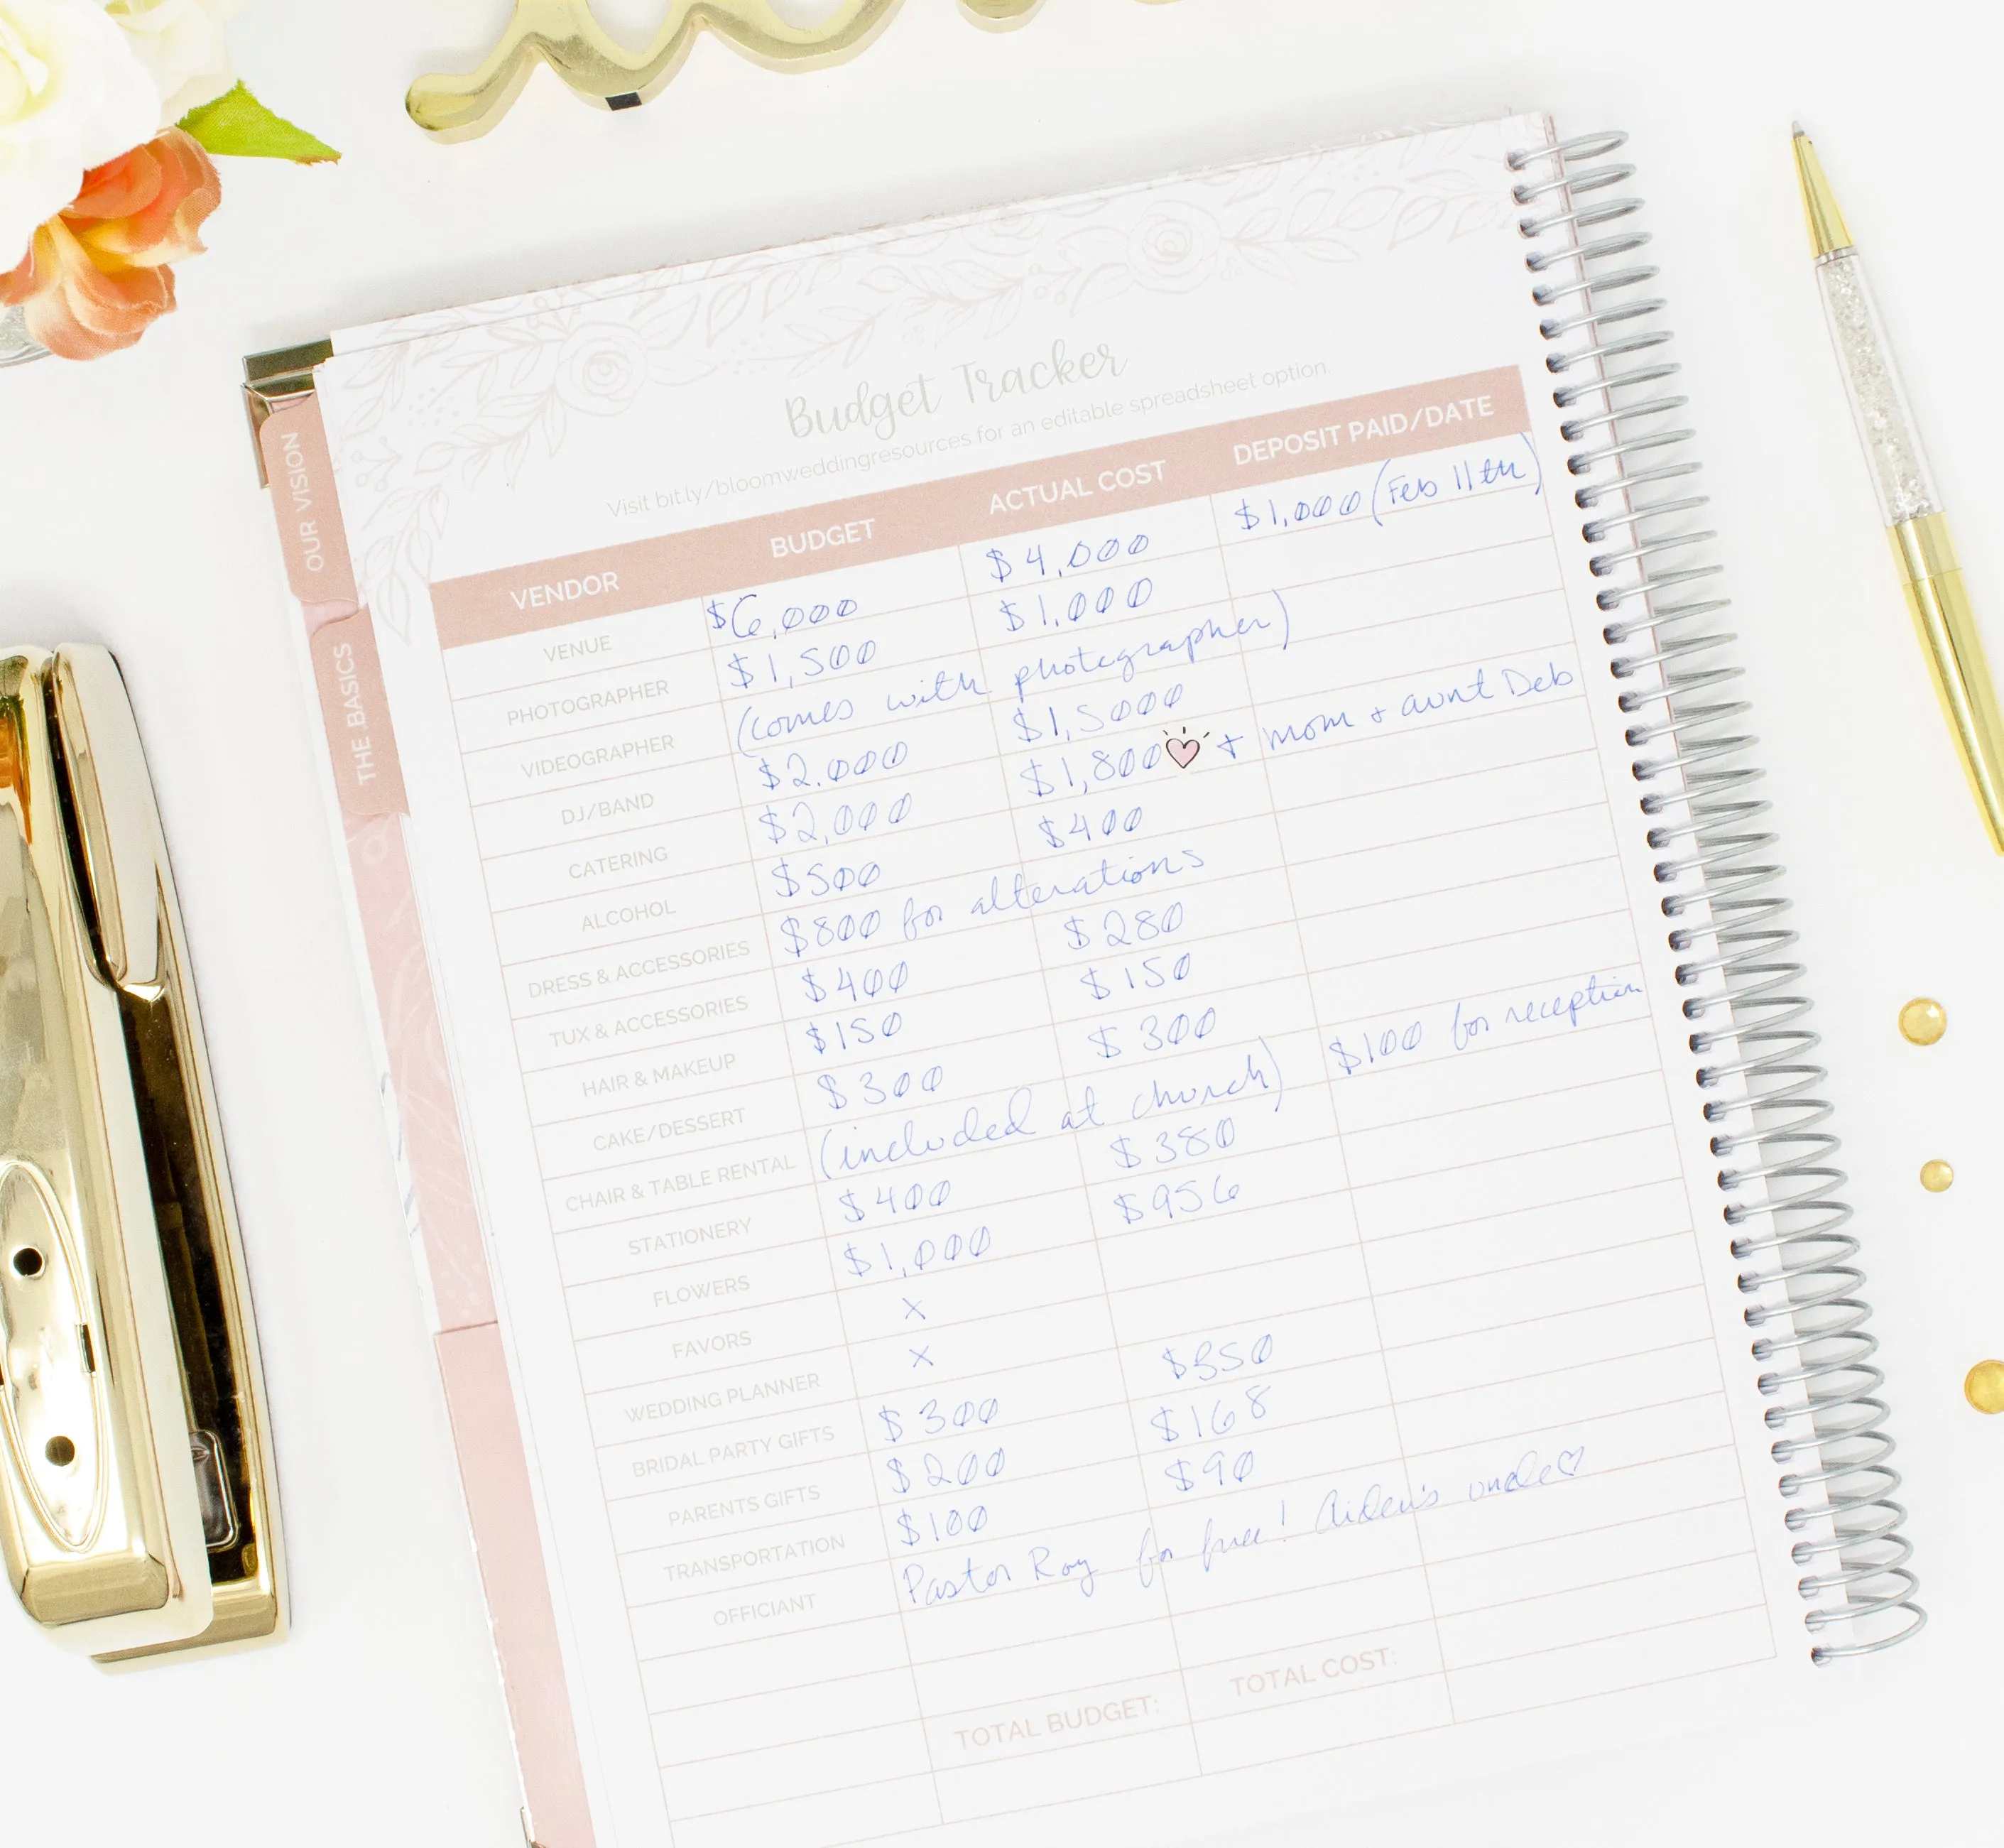 Budget Tracker
Visit bit.ly/bloomweddingresources for an editable spreadsheet option.
OUR VISION
THE BASICS
VENDOR BUDGET ACTUAL COST DEPOSIT PAID/DATE
VENUE $6,000 $4,000 $1,000 (Feb 11th)
PHOTOGRAPHER $1,500 $1,000
VIDEOGRAPHER (comes with photographer)
DJ/BAND $2,000 $1,5000
CATERING $2,000 $1,800 + mom + aunt Deb
ALCOHOL $500 $400
DRESS & ACCESSORIES $800 for alterations
TUX & ACCESSORIES $400 $280
HAIR & MAKEUP $150 $150
CAKE/DESSERT $300 $300
CHAIR & TABLE RENTAL (included at church) $100 for reception
STATIONERY $400 $380
FLOWERS $1,000 $956
FAVORS x
WEDDING PLANNER x
BRIDAL PARTY GIFTS $300 $350
PARENTS GIFTS $200 $168
TRANSPORTATION $100 $90
OFFICIANT Pastor Roy for free! Aiden's uncle♡
TOTAL BUDGET: TOTAL COST: